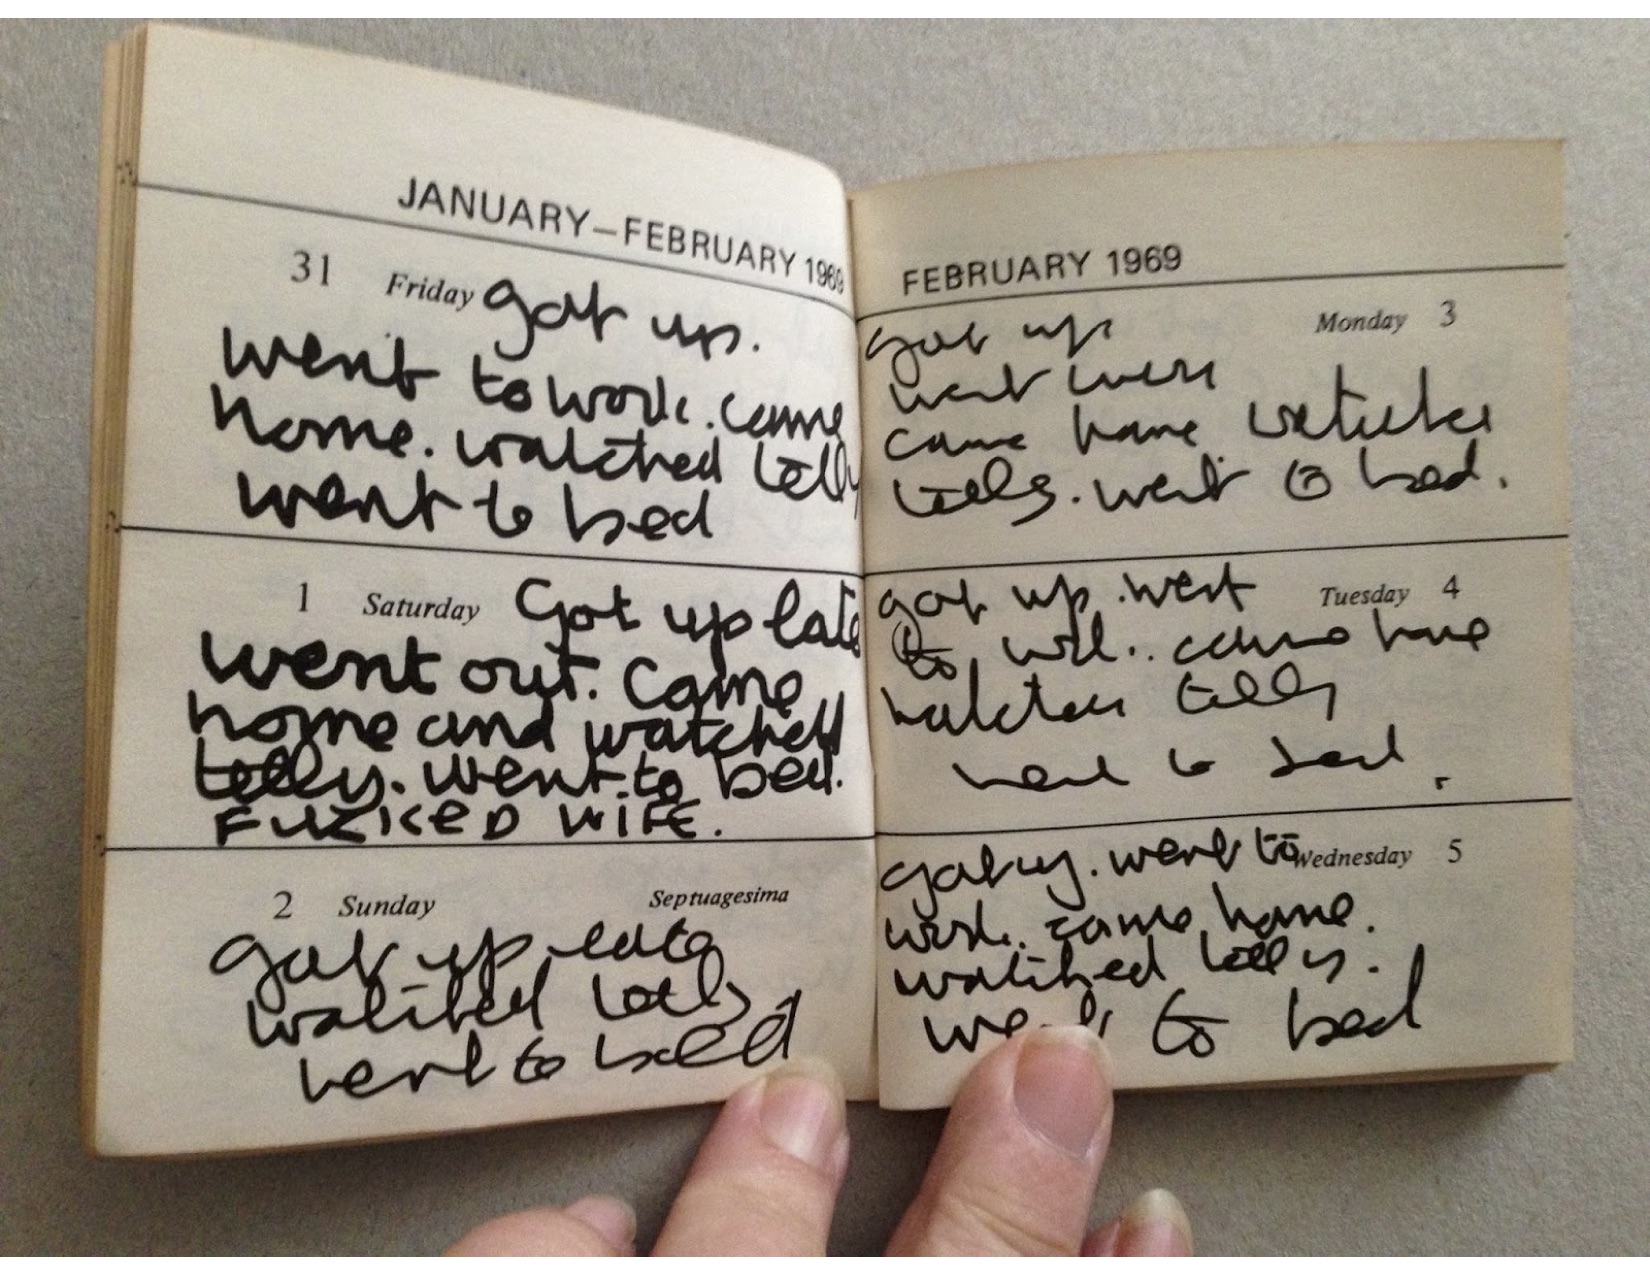 JANUARY–FEBRUARY 1969
31 Friday Got up.
went to work. came
home. watched telly
went to bed
1 Saturday Got up late
went out. Came
home and watched
telly. Went to bed.
FUCKED WIFE.
2 Sunday Septuagesima
Got up late
watched telly
went to bed
FEBRUARY 1969
Monday 3
got up
went work
came home watched
telly. went to bed.
got up. went Tuesday 4
to work. came home
watched telly
went to bed.
got up. went to Wednesday 5
work. came home.
watched telly.
went to bed